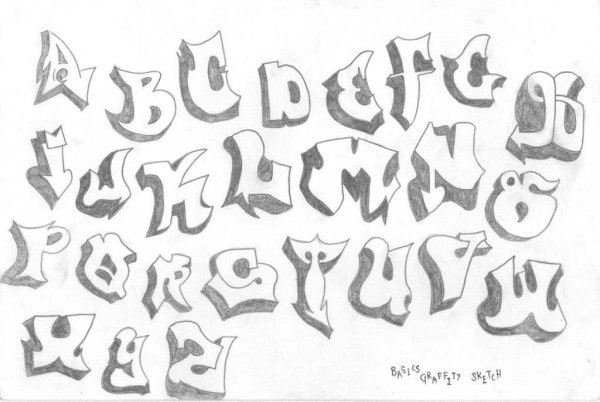 A B C D E F G H
I J K L M N O
P Q R S T U V W
X Y Z
BASICS GRAFFITY SKETCH